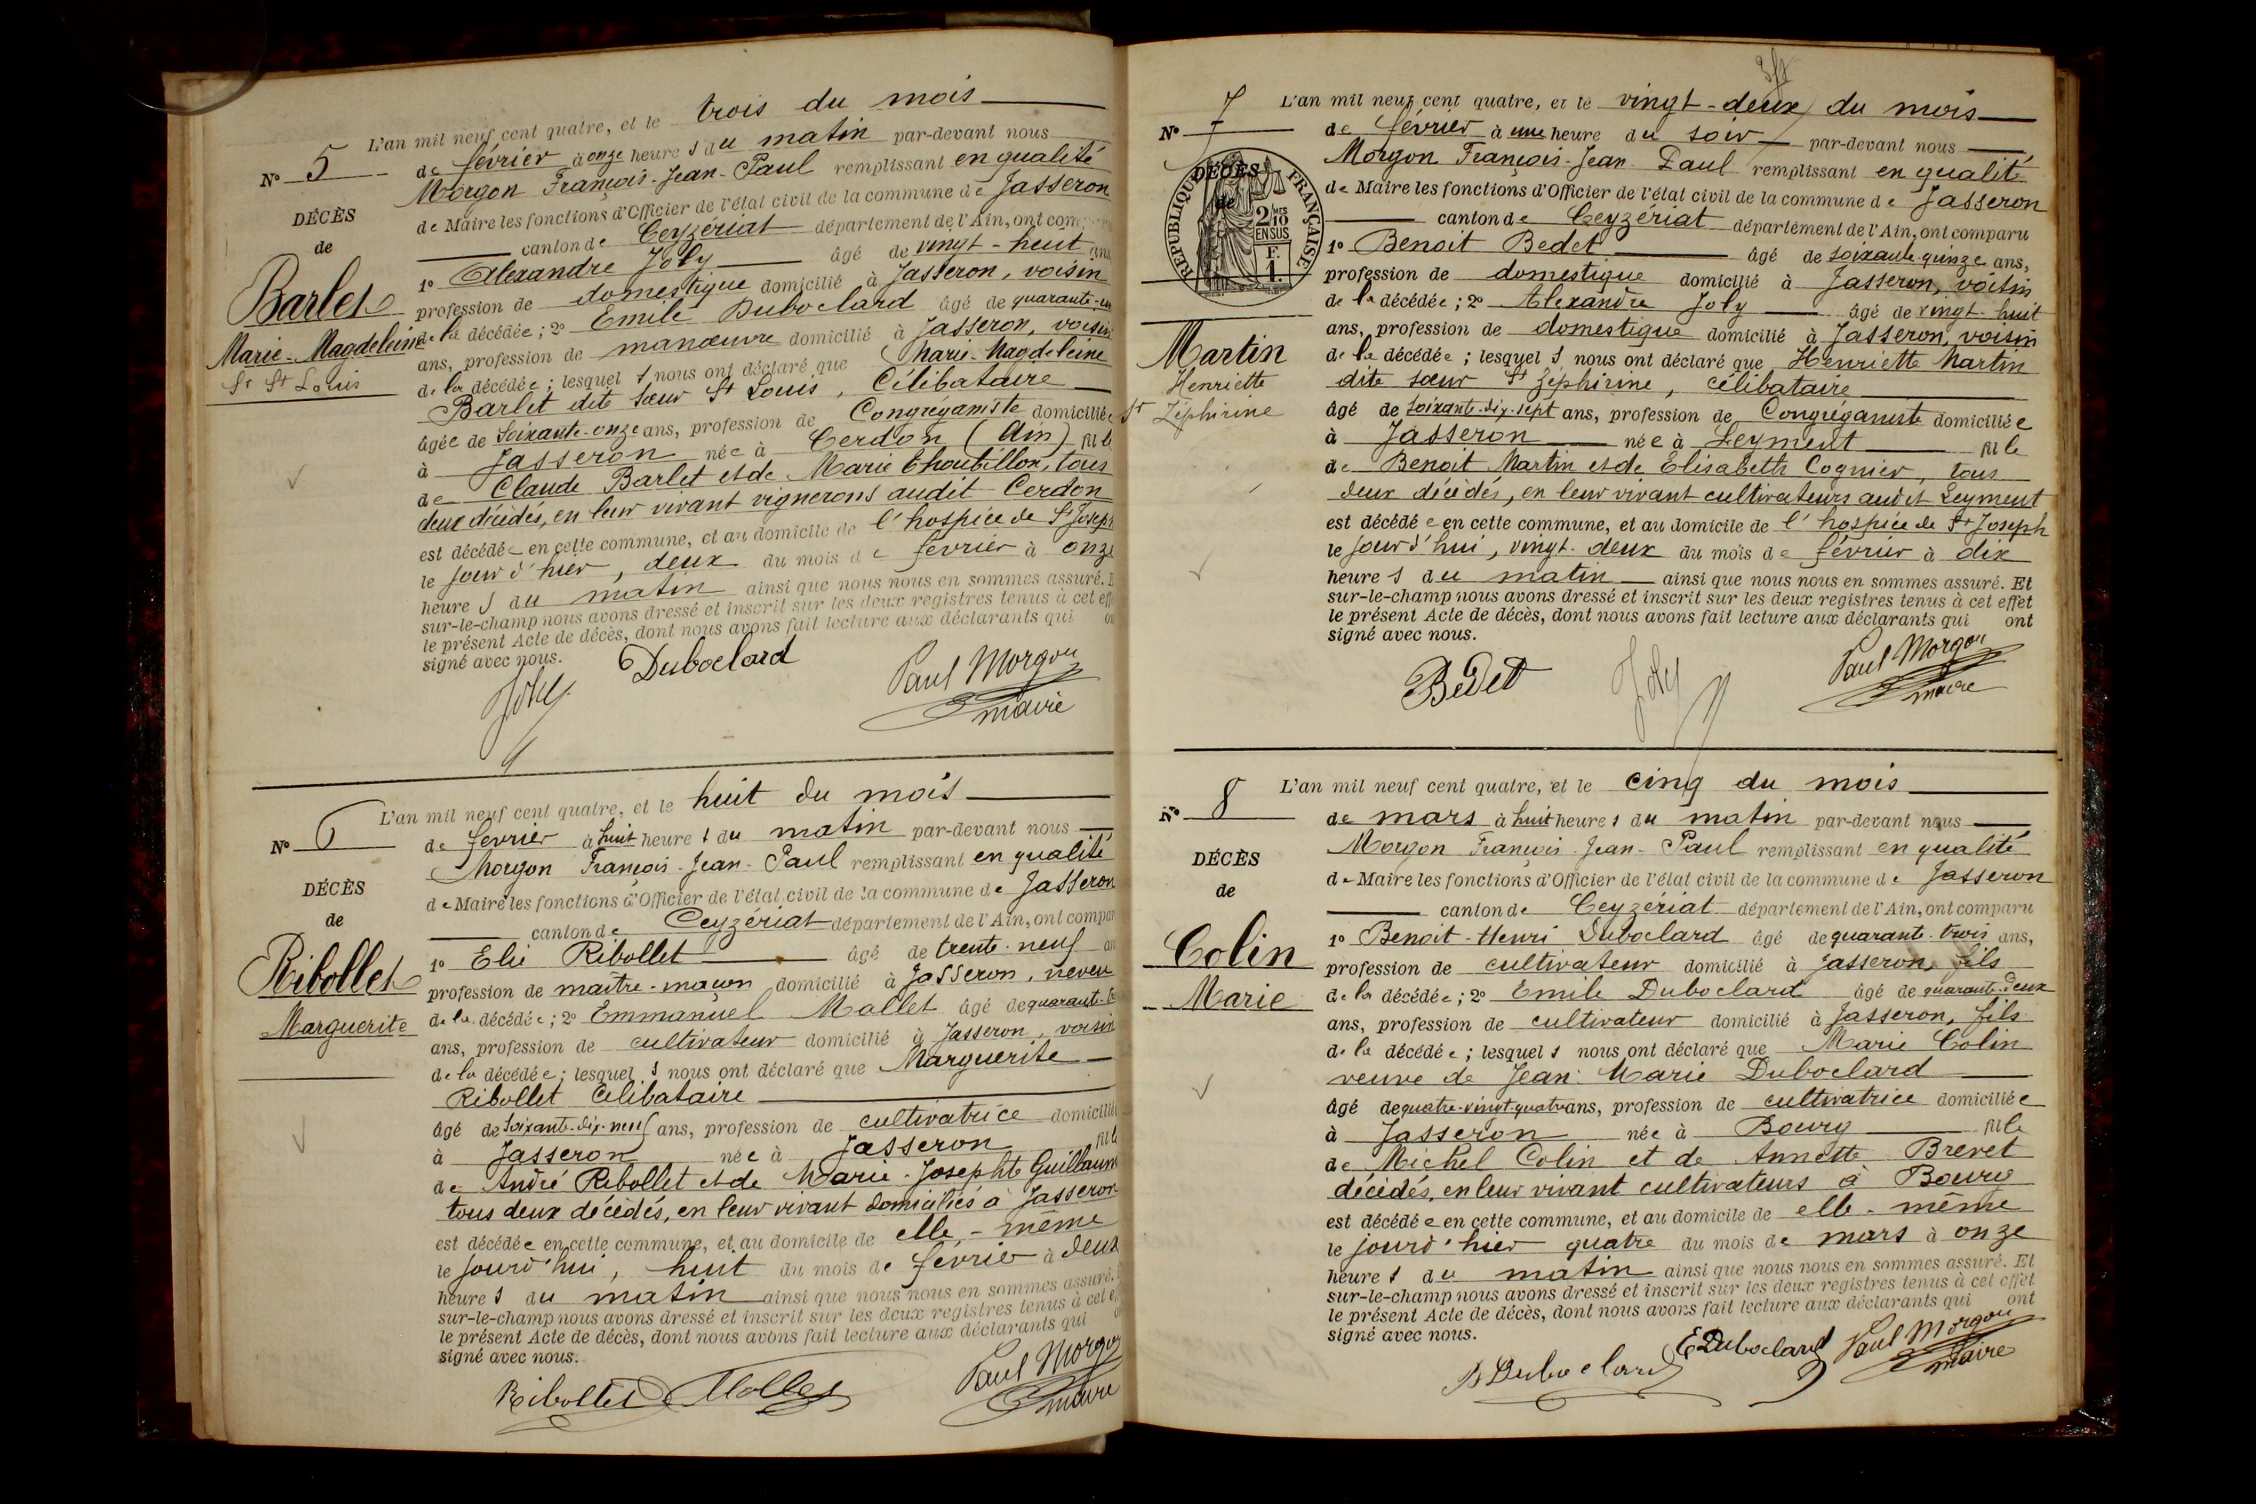 L'an mil neuf cent quatre, et le trois du mois
No 5
de février à onze heures du matin par-devant nous
Morgon François-Jean-Paul remplissant en qualité
de Maire les fonctions d'Officier de l'état civil de la commune de Jasseron
canton de Ceyzériat département de l'Ain, ont
1o Alexandre Joly âgé de vingt-huit ans
profession de domestique domicilié à Jasseron, voisin
de la décédée; 2o Emile Duboclard âgé de quarante-un
ans, profession de manœuvre domicilié à Jasseron, voisin
de la décédée; lesquels nous ont déclaré que Marie-Magdeleine
Barlet dite sœur St Louis, Célibataire
âgée de Soixante-onze ans, profession de Congréganiste domiciliée
à Jasseron née à Cerdon (Ain) fille
de Claude Barlet et de Marie Thoubillon, tous
deux décédés, en leur vivant vignerons audit Cerdon
est décédée en cette commune, et au domicile de l'hospice de St Joseph
le jour d'hier, deux du mois de février à onze
heures du matin ainsi que nous nous en sommes assuré.
sur-le-champ nous avons dressé et inscrit sur les deux registres tenus à cet eff
le présent Acte de décès, dont nous avons fait lecture aux déclarants qui on
signé avec nous.
DÉCÈS
de
Barlet
Marie-Magdeleine
Sr St Louis
Joly
Duboclard
Paul Morgon
maire
L'an mil neuf cent quatre, et le huit du mois
No 6
de fevrier à huit heures du matin par-devant nous
Morgon François-Jean-Paul remplissant en qualité
de Maire les fonctions d'Officier de l'état civil de la commune de Jasseron
canton de Ceyzériat département de l'Ain, ont compar
1o Elie Ribollet âgé de trente-neuf an
profession de maître-maçon domicilié à Jasseron, neveu
de la décédée; 2o Emmanuel Mollet âgé de
ans, profession de cultivateur domicilié à Jasseron, voisin
de la décédée; lesquels nous ont déclaré que Marguerite
Ribollet Célibataire
âgé de Soixante-dix-neuf ans, profession de cultivatrice domiciliée
à Jasseron née à Jasseron fille
de André Ribollet et de Marie-Josephte Guillaum
tous deux décédés, en leur vivant domiciliés à Jasseron
est décédée en cette commune, et au domicile de elle-même
le jourd'hui, huit du mois de fevrier à deux
heures du matin ainsi que nous nous en sommes assuré.
sur-le-champ nous avons dressé et inscrit sur les deux registres tenus à cet e
le présent Acte de décès, dont nous avons fait lecture aux déclarants qui
signé avec nous.
DÉCÈS
de
Ribollet
Marguerite
Ribollet
Mollet
Paul Morgon
maire
L'an mil neuf cent quatre, et le vingt-deux du mois
No 7
de février à une heure du soir par-devant nous
Morgon François-Jean-Paul remplissant en qualité
de Maire les fonctions d'Officier de l'état civil de la commune de Jasseron
canton de Ceyzériat département de l'Ain, ont comparu
1o Benoit Bedet âgé de Soixante-quinze ans,
profession de domestique domicilié à Jasseron, voisin
de la décédée; 2o Alexandre Joly âgé de vingt-huit
ans, profession de domestique domicilié à Jasseron, voisin
de la décédée; lesquels nous ont déclaré que Henriette Martin
dite sœur St Zéphirine, célibataire
âgé de Soixante-dix-sept ans, profession de Congréganiste domiciliée
à Jasseron née à Leyment fille
de Benoit Martin et de Elisabeth Cognier, tous
deux décédés, en leur vivant cultivateurs audit Leyment
est décédée en cette commune, et au domicile de l'hospice de St Joseph
le jourd'hui, vingt-deux du mois de février à dix
heures du matin ainsi que nous nous en sommes assuré. Et
sur-le-champ nous avons dressé et inscrit sur les deux registres tenus à cet effet
le présent Acte de décès, dont nous avons fait lecture aux déclarants qui ont
signé avec nous.
DÉCÈS
de
RÉPUBLIQUE FRANÇAISE
2/10
EN SUS
F.
1.
Martin
Henriette
St Zéphirine
Bedet
Joly
Paul Morgon
maire
L'an mil neuf cent quatre, et le cinq du mois
No 8
de mars à huit heures du matin par-devant nous
Morgon François-Jean-Paul remplissant en qualité
de Maire les fonctions d'Officier de l'état civil de la commune de Jasseron
canton de Ceyzériat département de l'Ain, ont comparu
1o Benoit-Henri Duboclard âgé de quarante-trois ans,
profession de cultivateur domicilié à Jasseron, fils
de la décédée; 2o Emile Duboclard âgé de quarante-deux
ans, profession de cultivateur domicilié à Jasseron, fils
de la décédée; lesquels nous ont déclaré que Marie Colin
veuve de Jean-Marie Duboclard
âgé de quatre-vingt-quatre ans, profession de cultivatrice domiciliée
à Jasseron née à Bourg fille
de Michel Colin et de Annette Brevet
décédés, en leur vivant cultivateurs à Bourg
est décédée en cette commune, et au domicile de elle-même
le jourd'hier quatre du mois de mars à onze
heures du matin ainsi que nous nous en sommes assuré. Et
sur-le-champ nous avons dressé et inscrit sur les deux registres tenus à cet effet
le présent Acte de décès, dont nous avons fait lecture aux déclarants qui ont
signé avec nous.
DÉCÈS
de
Colin
Marie
B Duboclard
E Duboclard
Paul Morgon
maire